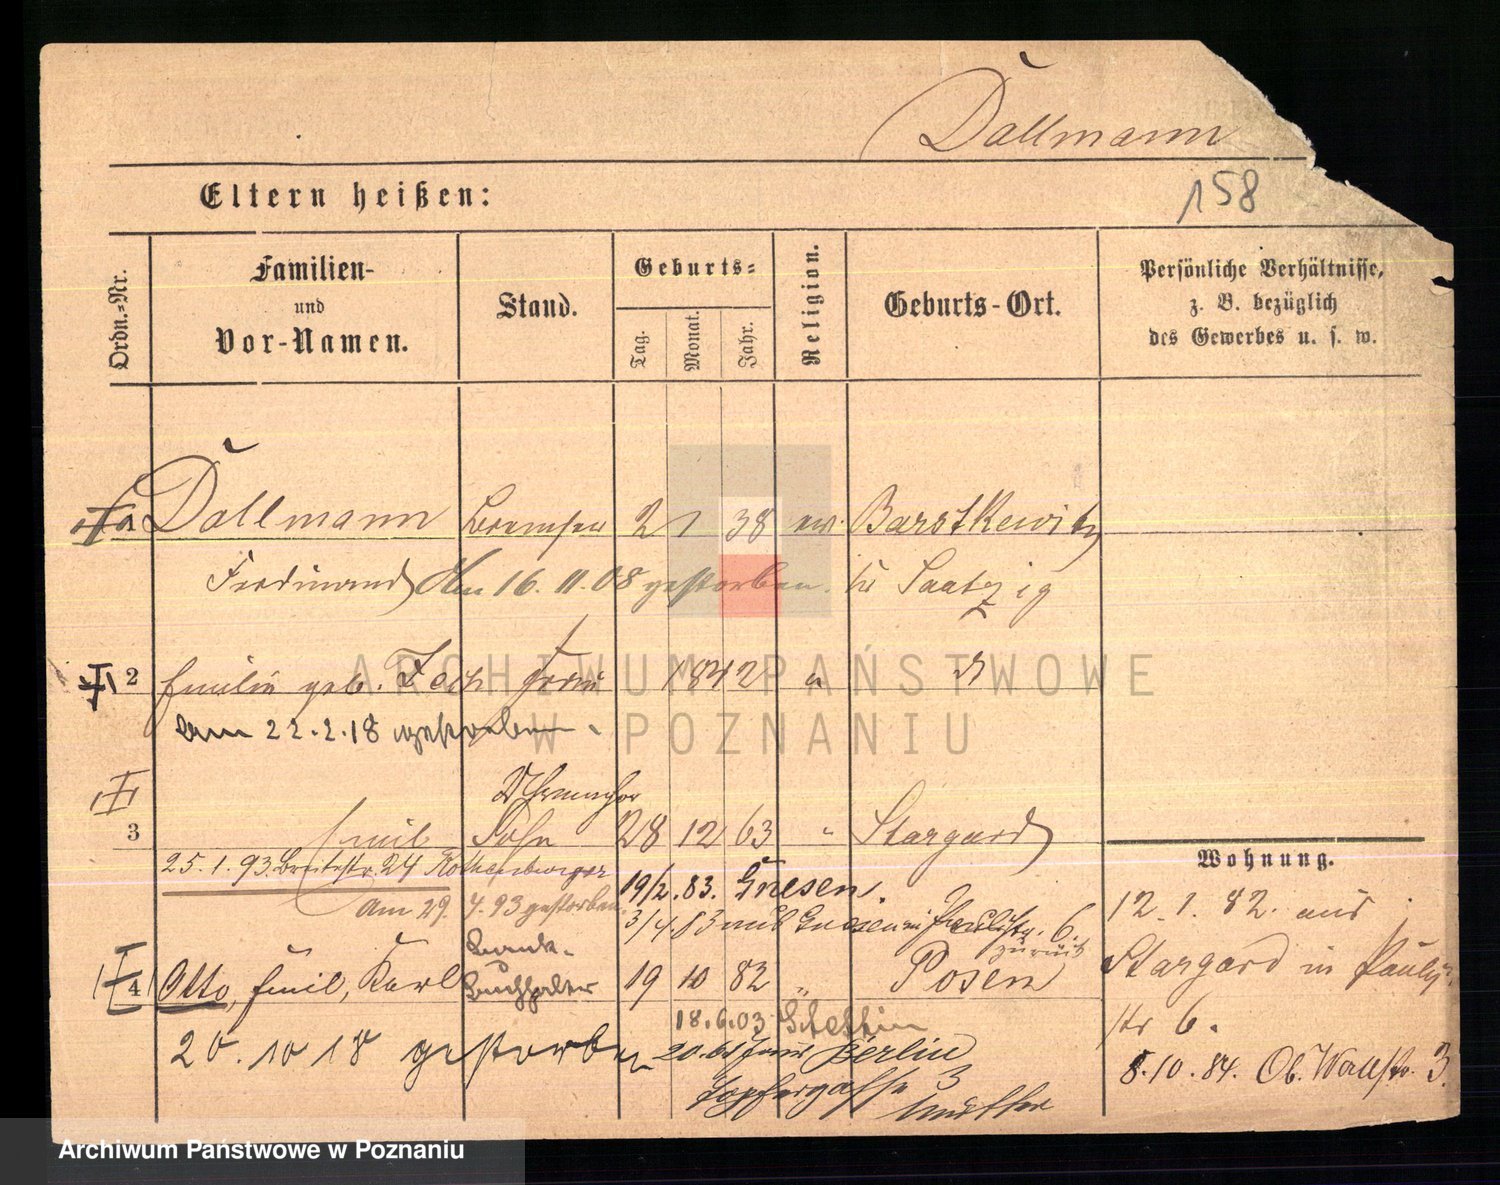 Dallmann
158
Eltern heißen:
Ordn.-Nr.
Familien-
und
Vor-Namen.
Stand.
Geburts-
Tag.
Monat.
Jahr.
Religion.
Geburts-Ort.
Persönliche Verhältnisse,
z. B. bezüglich
des Gewerbes u. s. w.
1 Dallmann Bremser 2 1 38 ev. Barskewitz
Ferdinand Am 16.11.08 gestorben. Kr Saatzig
2 Emilie geb. Zech Frau 1842 "
am 22.2.18 gestorben.
Uhrmacher
3 Emil Sohn 28 12 63 " Stargard
25.1.93. Breitestr. 24 Rothenburger
19/2. 83. Gnesen.
am 29. 4.93 gestorben
3/4.83 aus Gnesen in Paulistr. 6.
zurück
Bank-
4 Otto, Emil, Karl Buchhalter 19 10 82 " Posen
18.6.03 Stettin
20.10 18 gestorben
Berlin
Töpfergasse 3
Mutter
Wohnung.
12.1.82. aus
Stargard in Pauli
str 6.
8.10.84. Ob. Wallstr. 3.
ARCHIWUM PAŃSTWOWE
W POZNANIU
Archiwum Państwowe w Poznaniu